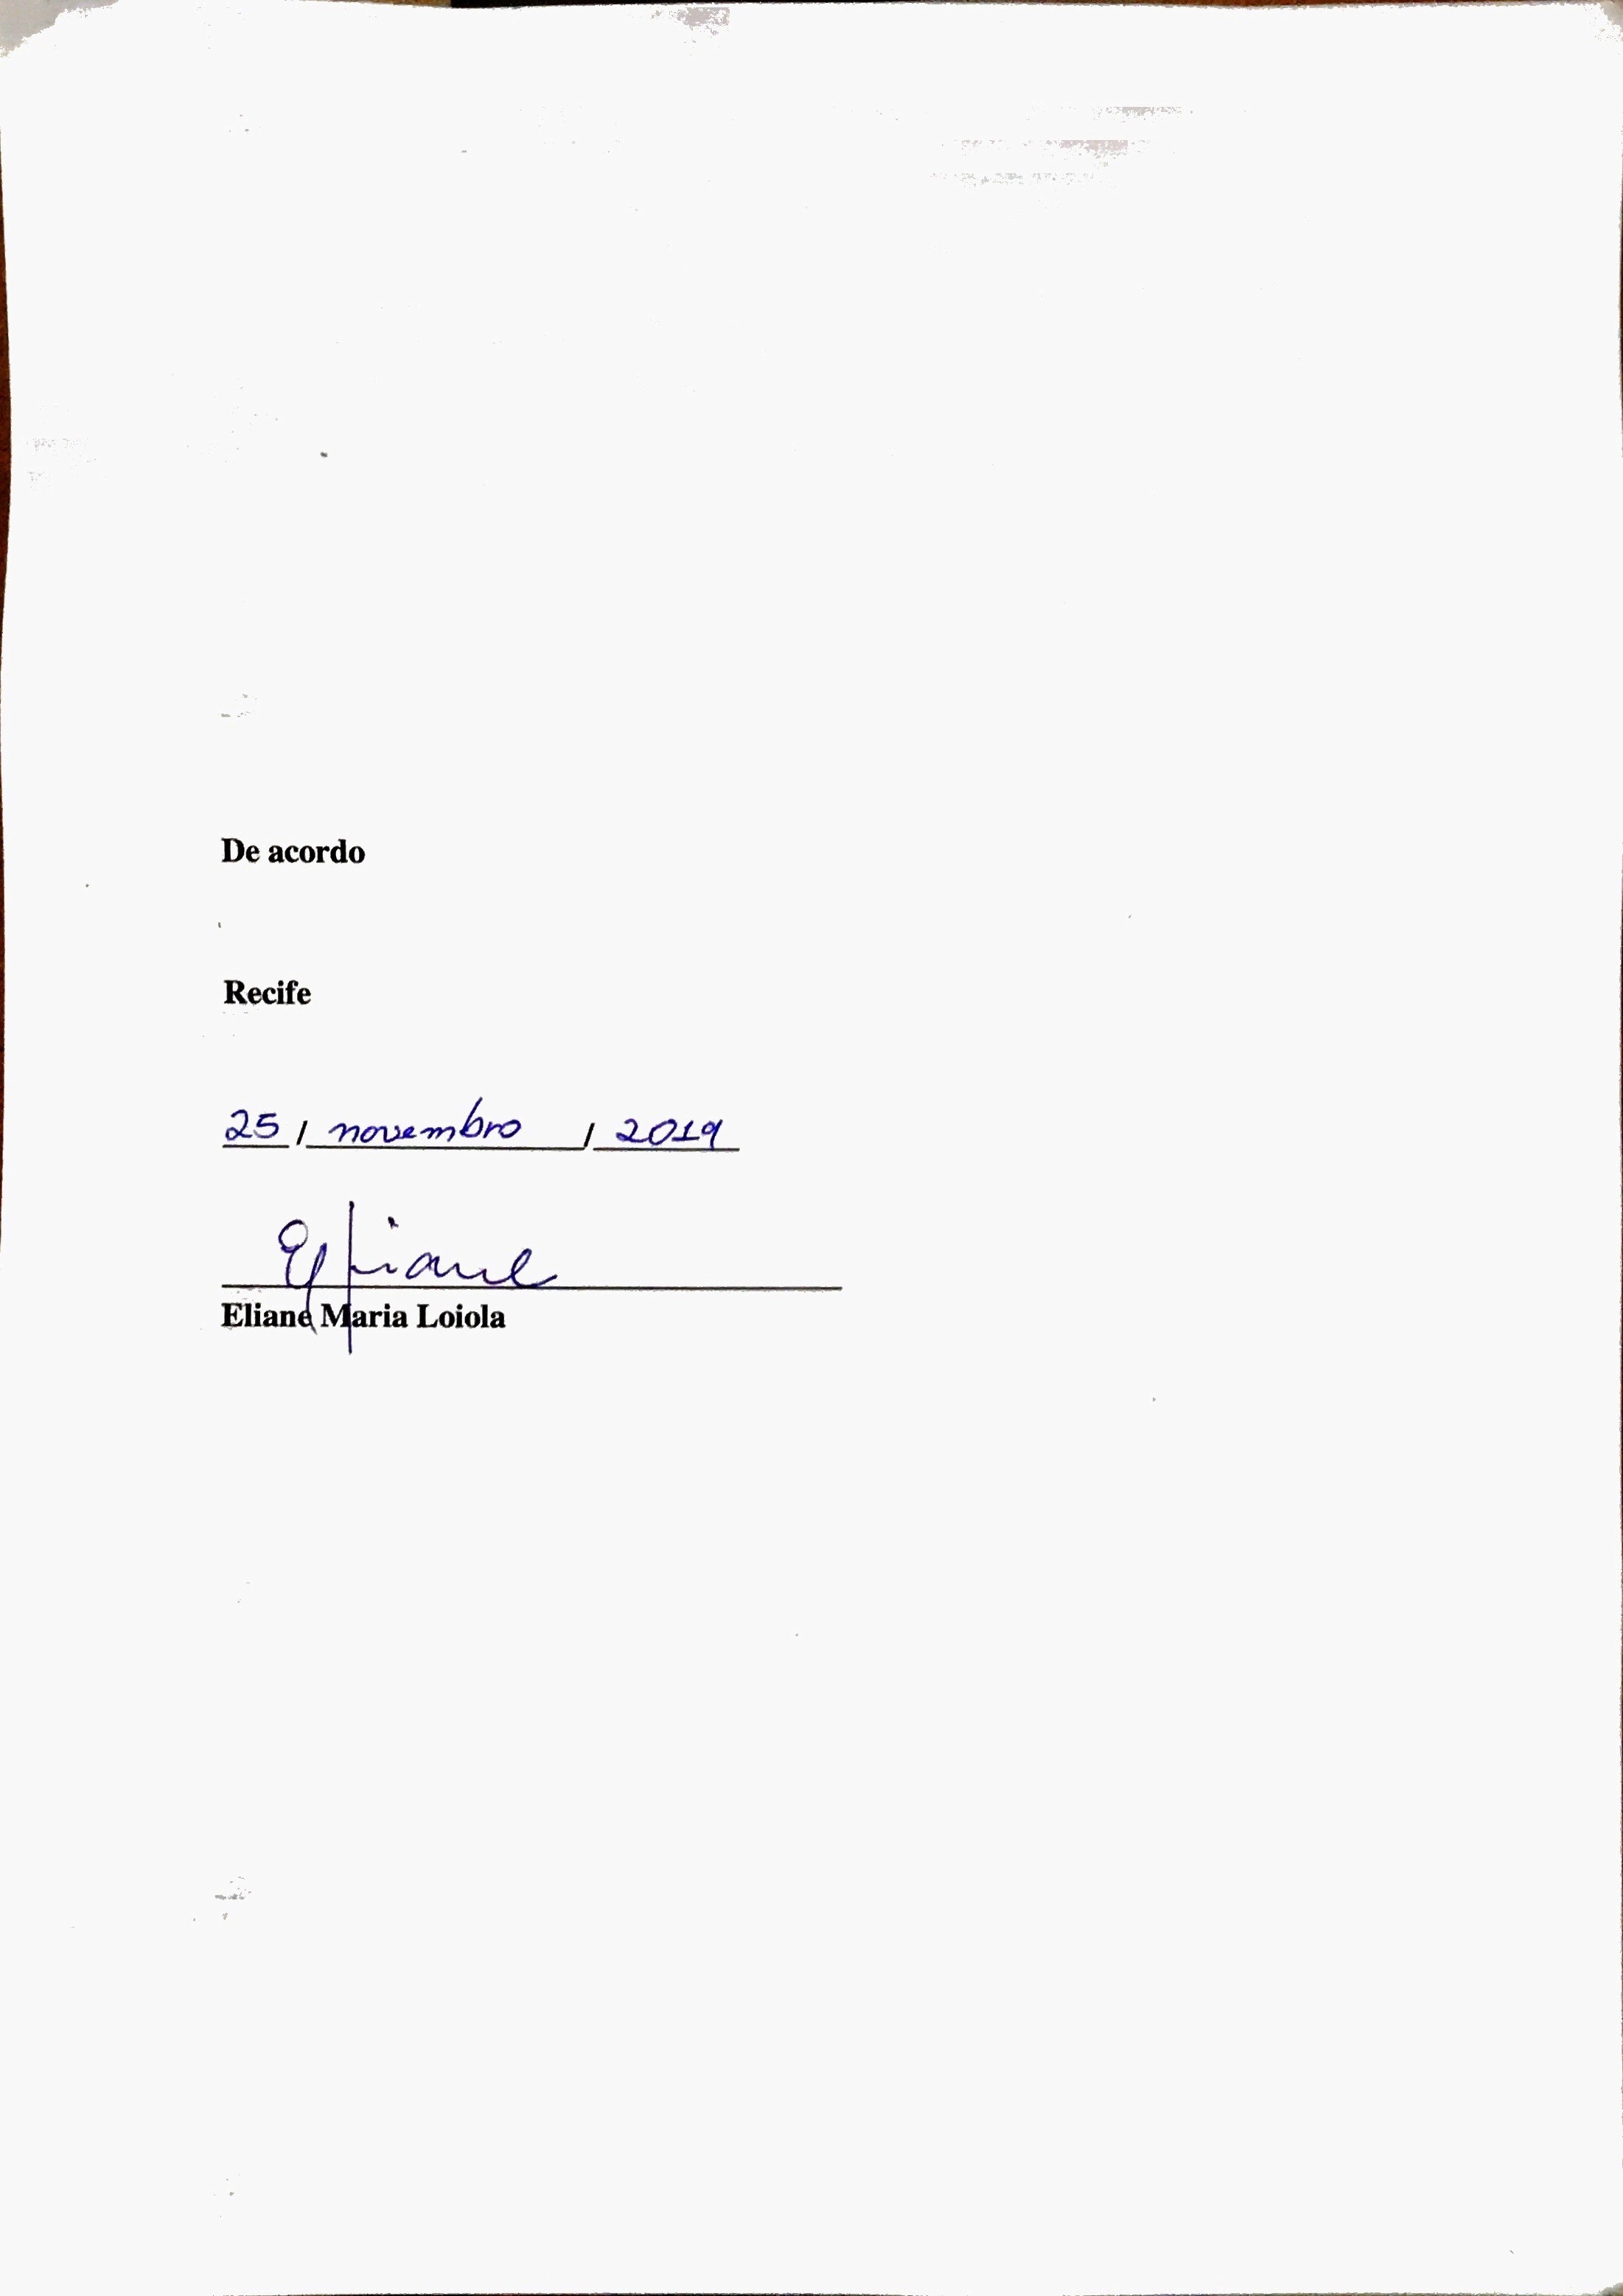 De acordo
Recife
25 / novembro / 2019
Eliane
Eliane Maria Loiola